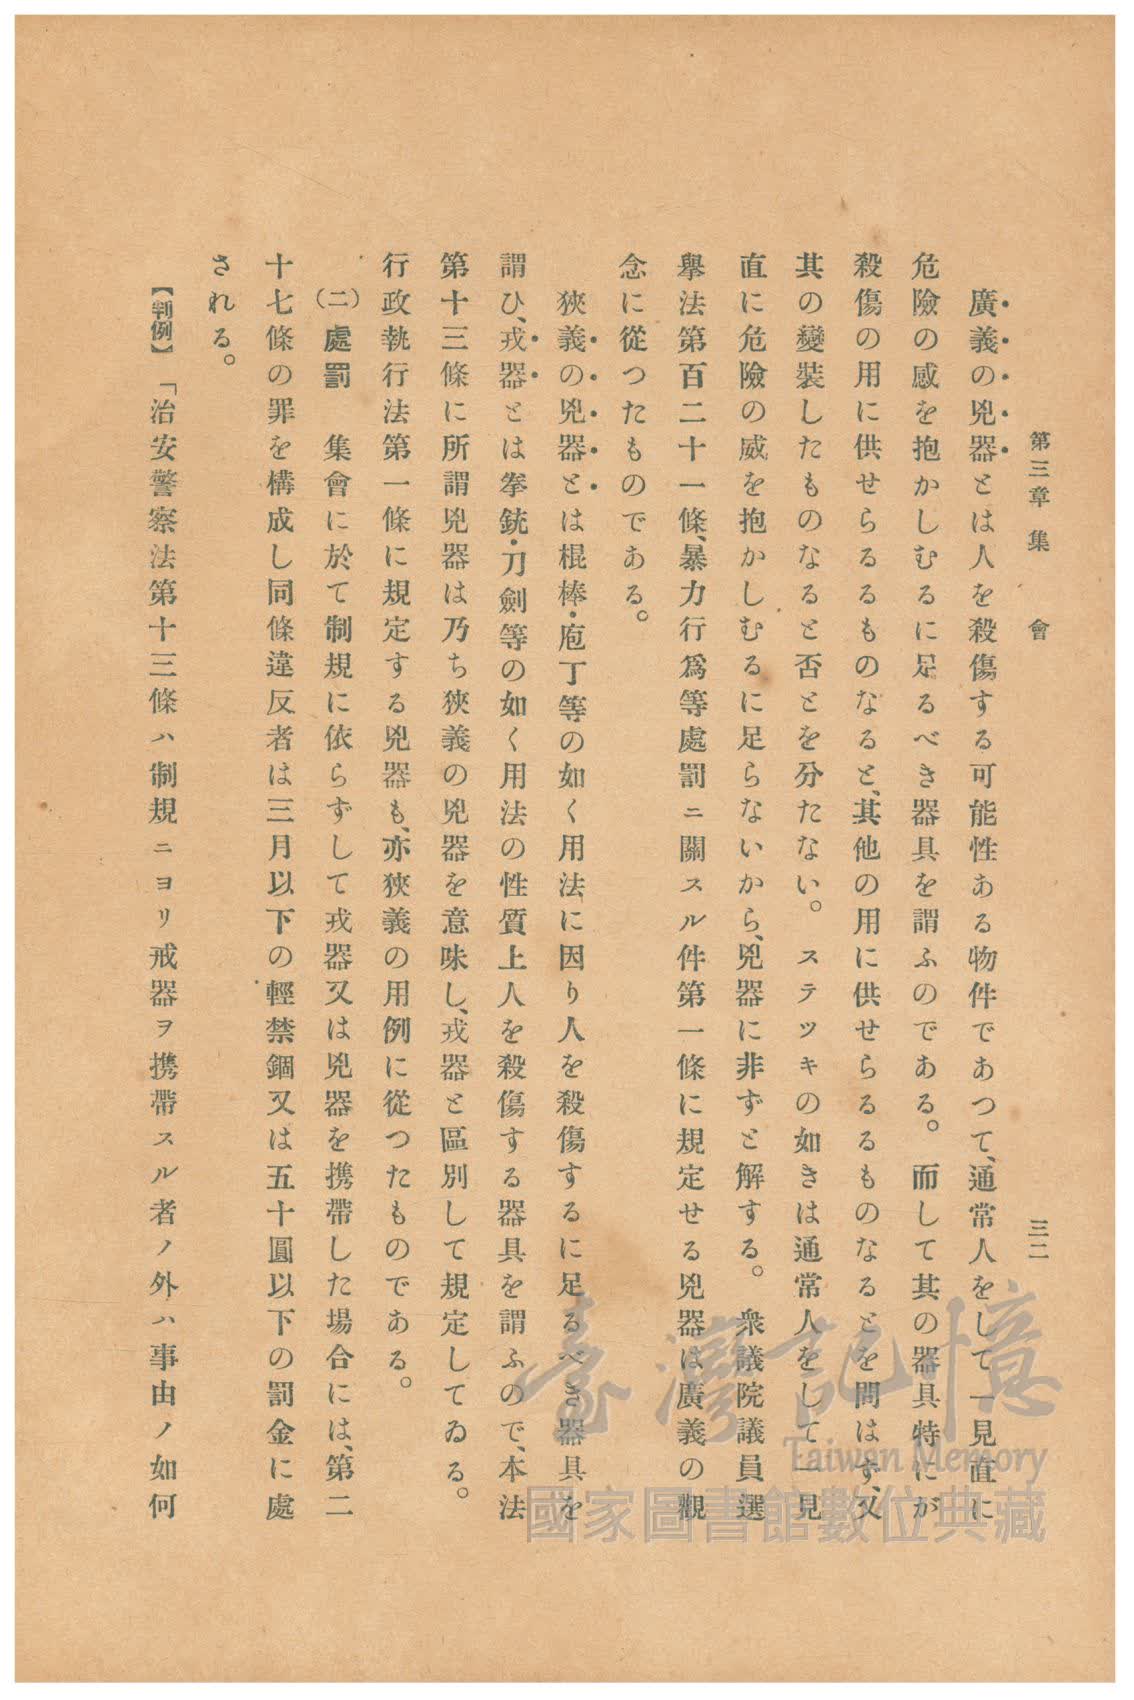 第三章 集 會
三二
廣義の兇器とは人を殺傷する可能性ある物件であつて、通常人をして一見直に
危險の感を抱かしむるに足るべき器具を謂ふのである。而して其の器具特にが
殺傷の用に供せらるるものなると、其他の用に供せらるるものなるとを問はず、又
其の變裝したものなると否とを分たない。ステツキの如きは通常人をして一見
直に危險の威を抱かしむるに足らないから、兇器に非ずと解する。衆議院議員選
擧法第百二十一條、暴力行爲等處罰ニ關スル件第一條に規定せる兇器は廣義の觀
念に從つたものである。
狹義の兇器とは棍棒・庖丁等の如く用法に因り人を殺傷するに足るべき器具を
謂ひ、戎器とは拳銃・刀劍等の如く用法の性質上人を殺傷する器具を謂ふので、本法
第十三條に所謂兇器は乃ち狹義の兇器を意味し、戎器と區別して規定してゐる。
行政執行法第一條に規定する兇器も、亦狹義の用例に從つたものである。
(二) 處罰 集會に於て制規に依らずして戎器又は兇器を携帶した場合には、第二
十七條の罪を構成し同條違反者は三月以下の輕禁錮又は五十圓以下の罰金に處
される。
【判例】「治安警察法第十三條ハ制規ニヨリ戒器ヲ携帶スル者ノ外ハ事由ノ如何
臺灣記憶
Taiwan Memory
國家圖書館數位典藏